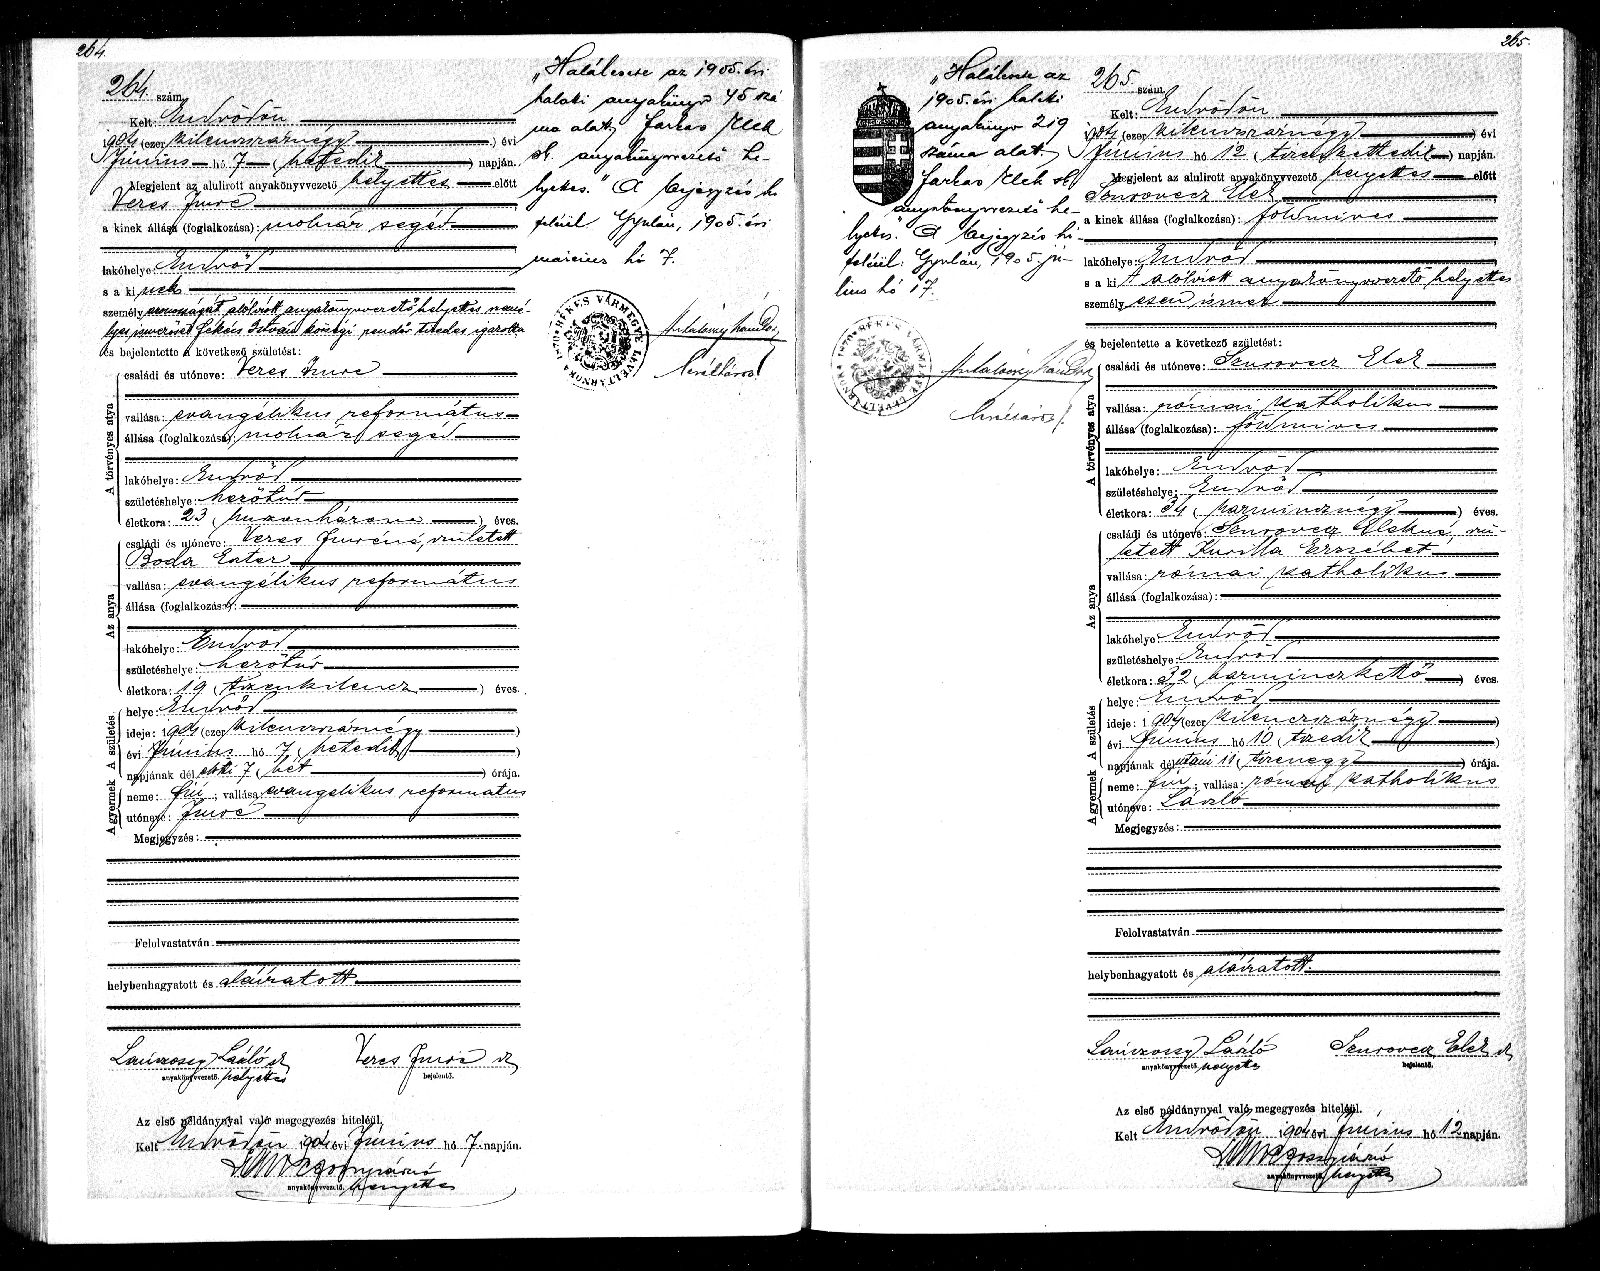 264.
264. szám.
Kelt: Endrődön
1904 (ezer kilenczszáznégy) évi
Június hó 7 (hetedik) napján.
Megjelent az alulirott anyakönyvvezető helyettes előtt
Veres Imre
a kinek állása (foglalkozása): molnár segéd
lakóhelye: Endrőd
s a ki nek
személyazonosságát alólírott anyakönyvvezető helyettes
István községi rendőr tizedes igazolta
és bejelentette a következő születést:
A törvényes atya
családi és utóneve: Veres Imre
vallása: evangélikus református
állása (foglalkozása): molnár segéd
lakóhelye: Endrőd
születéshelye:
életkora: 23 (huszonhárom) éves.
Az anya
családi és utóneve: Veres Imréné, született
Boda Eszter
vallása: evangélikus református
állása (foglalkozása):
lakóhelye: Endrőd
születéshelye:
életkora: 19 (tizenkilencz) éves.
A gyermek A születés
helye: Endrőd
ideje: 1904 (ezer kilenczszáznégy)
évi Június hó 7 (hetedik)
napjának dél előtti 7 (hét) órája.
neme: fiú; vallása: evangélikus református
utóneve: Imre
Megjegyzés:
Felolvastatván
helybenhagyatott és aláíratott
László sk Veres Imre sk
anyakönyvvezető. helyettes bejelentő.
Az első példánynyal való megegyezés hiteléül.
Kelt Endrődön 1904 évi Június hó 7 napján.
anyakönyvvezető. helyettes
„Halálesete az 1905. évi
halotti anyakönyv 45 szá
ma alatt, Farkas Elek
sk. anyakönyvvezető he-
lyettes." A bejegyzés hi
teléül Gyulán, 1905. évi
márczius hó 7.
BÉKÉS VÁRMEGYE LEVÉLTÁRNOKA
levéltáros
265.
„Halálesete az
1905. évi halotti
anyakönyv 219
száma alatt.
Farkas Elek sk
anyakönyvvezető he-
lyettes." A bejegyzés hi-
teléül: Gyulán, 1905. jú-
lius hó 17.
BÉKÉS VÁRMEGYE LEVÉLTÁRNOKA
265. szám.
Kelt: Endrődön
1904 (ezer kilenczszáznégy) évi
Június hó 12 (tizenkettedik) napján.
Megjelent az alulirott anyakönyvvezető helyettes előtt
Szurovecz Elek
a kinek állása (foglalkozása): földmíves
lakóhelye: Endrőd
s a ki t alólírott anyakönyvvezető helyettes
személyesen ismer
és bejelentette a következő születést:
A törvényes atya
családi és utóneve: Szurovecz Elek
vallása: római katholikus
állása (foglalkozása): földmíves
lakóhelye: Endrőd
születéshelye: Endrőd
életkora: 34 (harmincznégy) éves.
Az anya
családi és utóneve: Szurovecz Elekné, szü-
letett Kurilla Erzsébet
vallása: római katholikus
állása (foglalkozása):
lakóhelye: Endrőd
születéshelye: Endrőd
életkora: 32 (harminczkettő) éves.
A gyermek A születés
helye: Endrőd
ideje: 1904 (ezer kilenczszáznégy)
évi Június hó 10 (tizedik)
napjának dél utáni 11 (tizenegy) órája.
neme: fiú; vallása: római katholikus
utóneve: László
Megjegyzés:
Felolvastatván
helybenhagyatott és aláíratott.
László Szurovecz Elek sk
anyakönyvvezető. helyettes bejelentő.
Az első példánynyal való megegyezés hiteléül.
Kelt Endrődön 1904 évi Június hó 12 napján.
anyakönyvvezető. helyettes